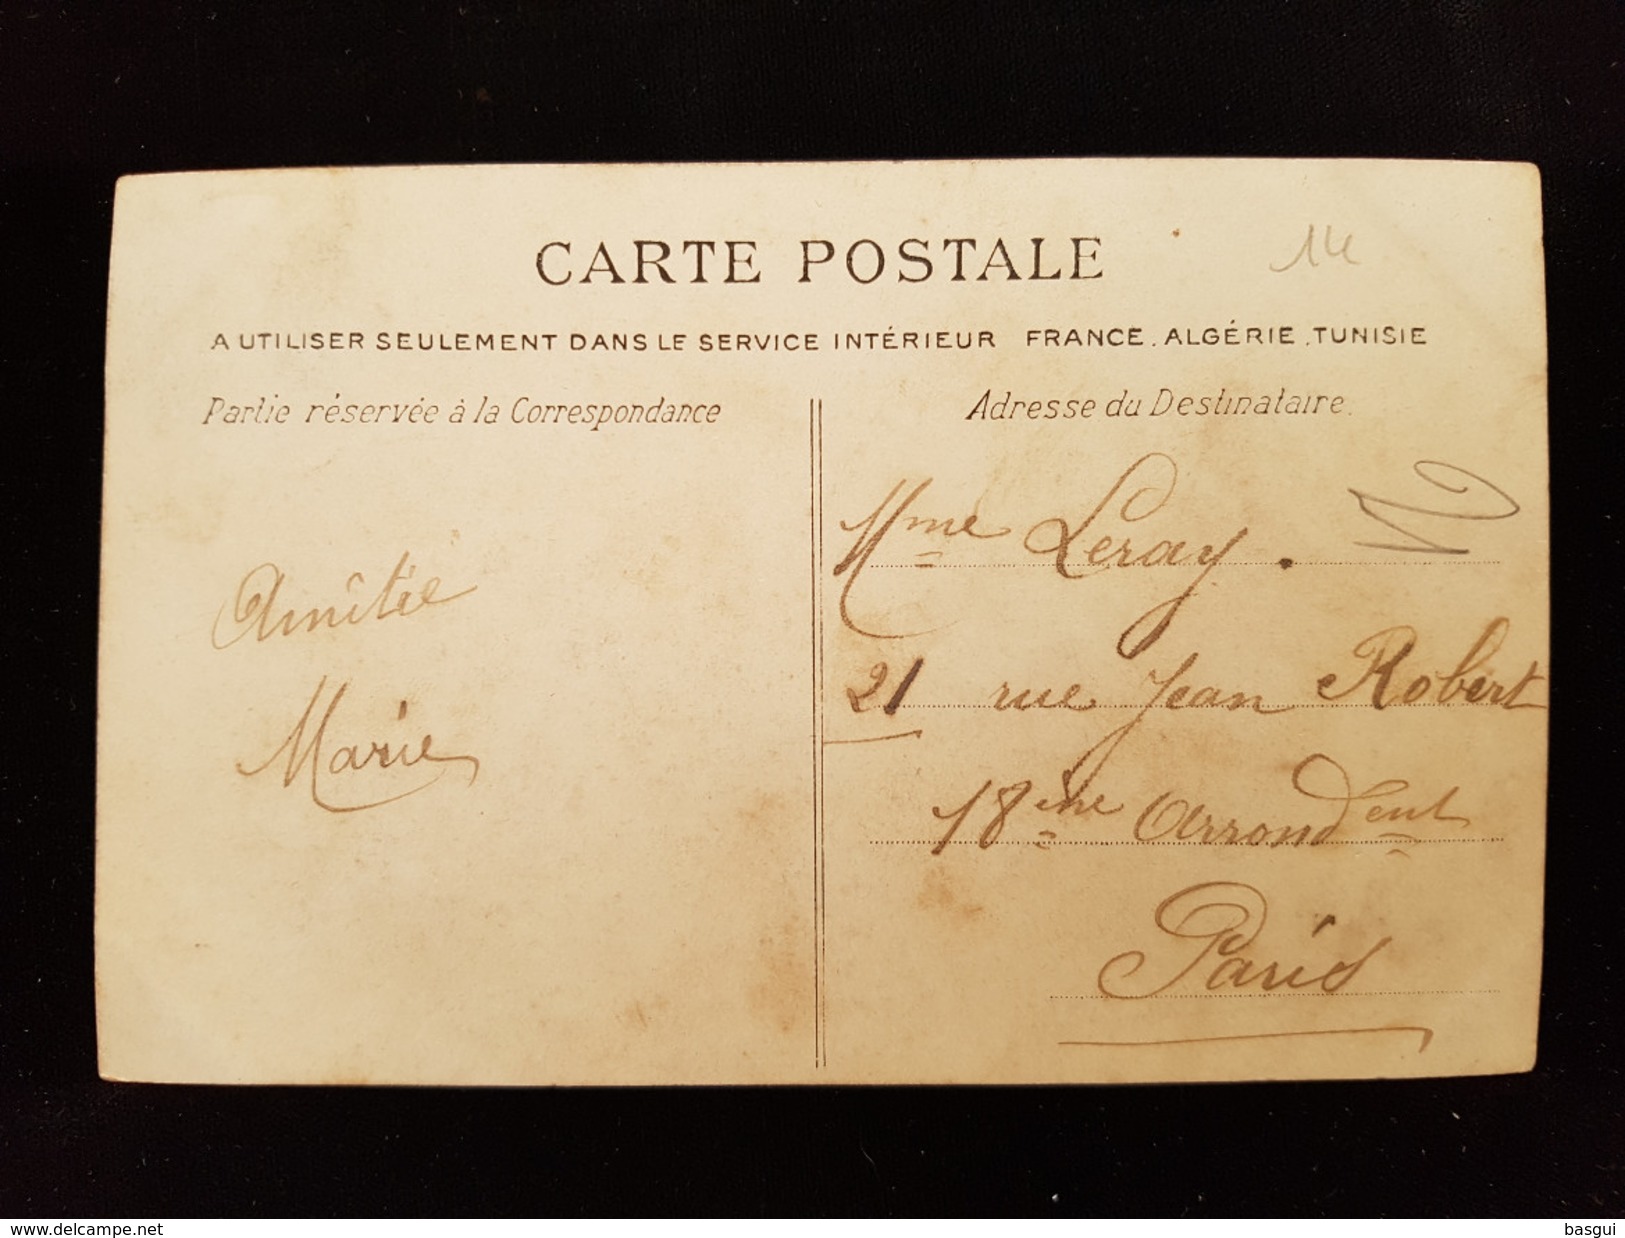 CARTE POSTALE
14
A UTILISER SEULEMENT DANS LE SERVICE INTÉRIEUR FRANCE. ALGÉRIE. TUNISIE
Partie réservée à la Correspondance
Amitié
Marie
Adresse du Destinataire.
Mme Leray.
21 rue Jean Robert
18ème Arrondent
Paris
www.delcampe.net
basgui